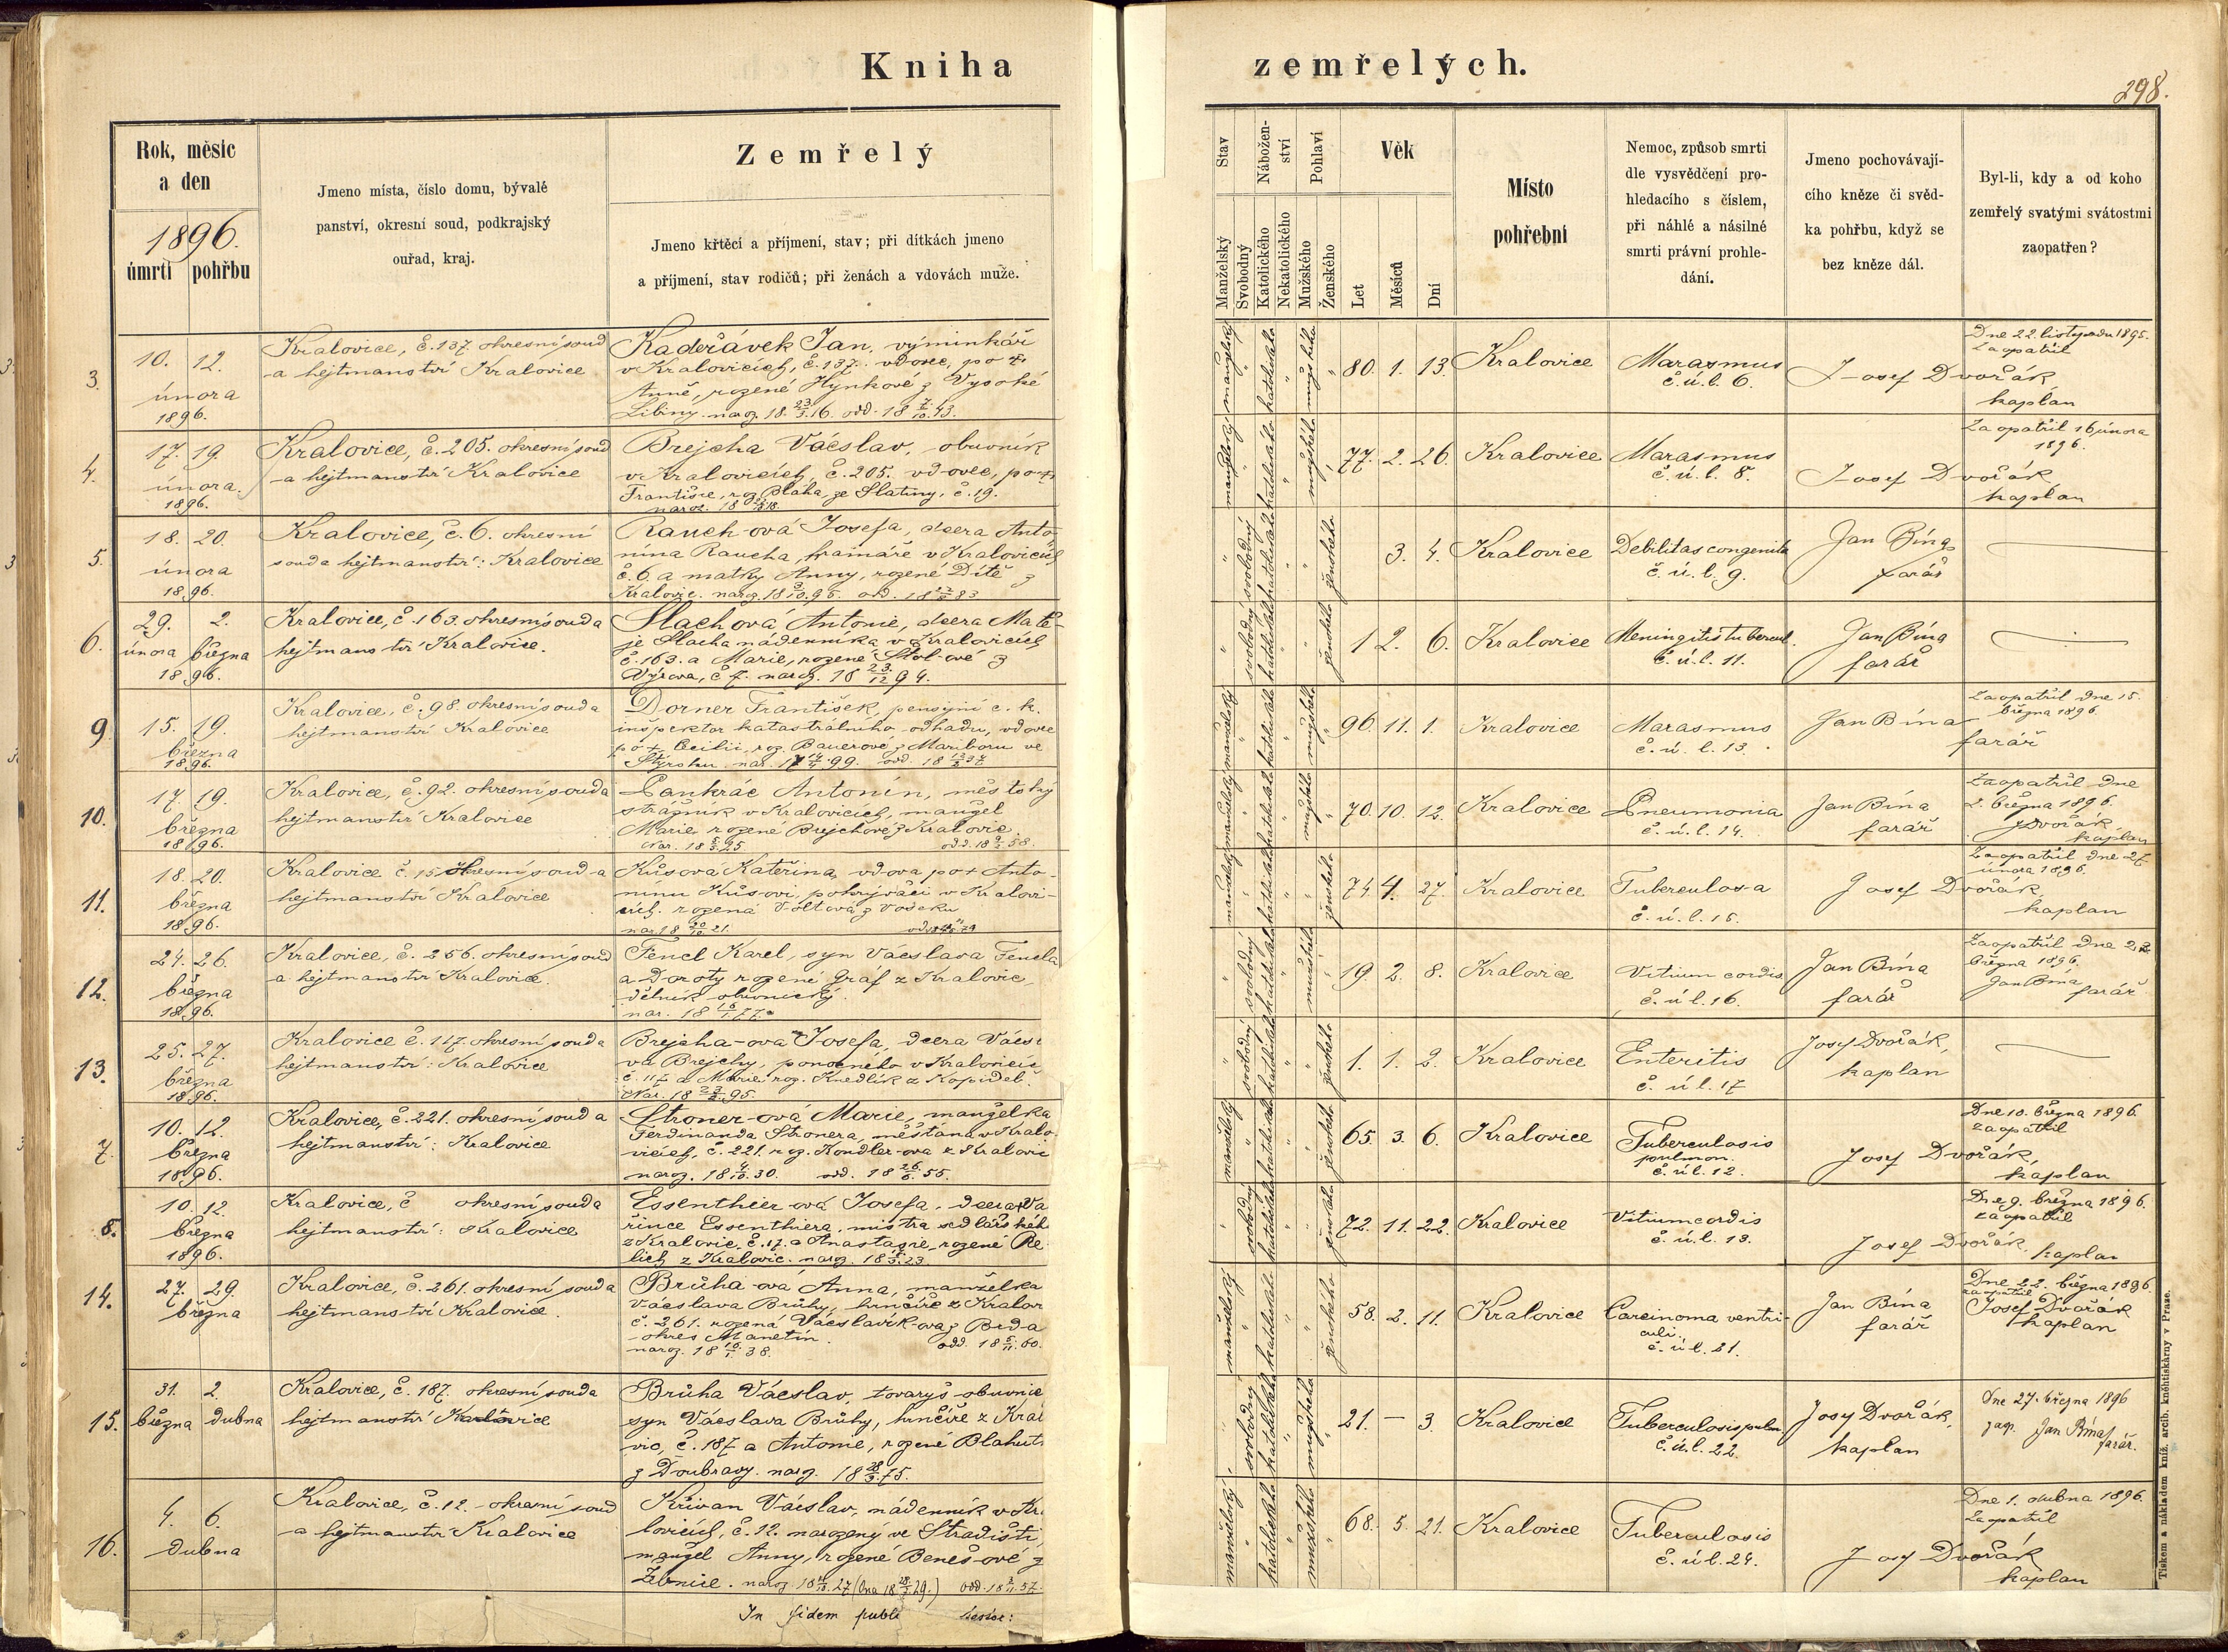 Kniha zemřelých.
298.
Rok, měsíc
a den
1896.
úmrtí pohřbu
Jmeno místa, číslo domu, bývalé
panství, okresní soud, podkrajský
ouřad, kraj.
Zemřelý
Jmeno křtěcí a příjmení, stav; při dítkách jmeno
a příjmení, stav rodičů; při ženách a vdovách muže.
Stav
Manželský
Svobodný
Nábožen-
ství
Katolického
Nekatolického
Pohlaví
Mužského
Ženského
Věk
Let
Měsíců
Dní
Místo
pohřební
Nemoc, způsob smrti
dle vysvědčení pro-
hledacího s číslem,
při náhlé a násilné
smrti právní prohle-
dání.
Jmeno pochovávají-
cího kněze či svěd-
ka pohřbu, když se
bez kněze dál.
Byl-li, kdy a od koho
zemřelý svatými svátostmi
zaopatřen?
3.
10. 12.
února
1896.
Kralovice, č. 137. okresní soud
a hejtmanství Kralovice
Kadeřávek Jan, výminkář
v Kralovicích, č. 137. vdovec, po †
Anně, rozené Hynkové z Vysoké
Libiny. naroz. 18 23/3 16. odd. 18 7/10 43.
manželský
katolického
mužského
80. 1. 13.
Kralovice
Marasmus
č. ú. l. 6.
Josef Dvořák,
kaplan
Dne 22. listopadu 1895.
zaopatřil
4.
17. 19.
února.
1896.
Kralovice, č. 205. okresní soud
a hejtmanství Kralovice
Brejcha Václav, obuvník
v Kralovicích, č. 205. vdovec, po †
Františce, roz. Bláha, ze Slatiny, č. 19.
manželský
katolického
mužského
77. 2. 26.
Kralovice
Marasmus
č. ú. l. 8.
Josef Dvořák
kaplan
Zaopatřil 16 února
1896.
5.
18. 20.
února
1896.
Kralovice, č. 6. okresní
soud a hejtmanství: Kralovice
Rauch-ová Josefa, dcera Anto-
nína Raucha, kramáře v Kralovicích
č. 6. a matky Anny, rozené Dítě z
svobodný
katolického
ženského
3. 4.
Kralovice
Debilitas congenita
č. ú. l. 9.
Jan Bína
farář
6.
29. 2.
února března
1896.
Kralovice, č. 163. okresní soud a
hejtmanství Kralovice.
Slachová Antonie, dcera Matě-
je Slacha nádenníka v Kralovicích
č. 163. a Marie, rozené Stol-ové z
Výrova, č 7. naroz. 18 23/12 94.
svobodný
katolického
ženského
1 2. 6.
Kralovice
Meningitis tubercul.
č. ú. l. 11.
Jan Bína
farář
9.
15. 19.
března
1896.
Kralovice, č. 98. okresní soud a
hejtmanství Kralovice
Dorner František, pensijní c. k.
inspektor katastrálního odhadu, vdovec
po † Cecilii, roz. Bauerové z Mariboru ve
Štýrsku
manželský
katolického
mužského
96. 11. 1.
Kralovice
Marasmus
č. ú. l. 13.
Jan Bína
farář
Zaopatřil dne 15.
března 1896.
10.
17. 19.
března
1896.
Kralovice, č. 92. okresní soud a
hejtmanství Kralovice
Pankrác Antonín, městský
strážník v Kralovicích, manžel
Marie rozené Brejchové z Kralovic.
manželský
katolického
mužského
70. 10. 12.
Kralovice
Pneumonia
č. ú. l. 14.
Jan Bína
farář
Zaopatřil dne
2. března 1896.
J Dvořák
kaplan
11.
18. 20.
března
1896.
Kralovice č. 15 okresní soud a
hejtmanství Kralovice
Kůsová Kateřina, vdova po † Anto-
nínu Kůsovi, pokrývači v Kralovi-
cích. rozená
manželský
katolického
ženského
74 4. 27.
Kralovice
Tuberculosa
č. ú. l. 15.
Josef Dvořák,
kaplan
Zaopatřil dne 27.
února 1896.
12.
24. 26.
března
1896.
Kralovice, č. 256. okresní soud
a hejtmanství Kralovice.
Fencl Karel, syn Václava Fencla
a Doroty rozené Gráf z Kralovic,
dělník obuvnický.
svobodný
katolického
19 2. 8.
Kralovice
Vitium cordis
č. ú l. 16.
Jan Bína
farář
Zaopatřil dne 22.
března 1896.
Jan Bína
farář
13.
25. 27.
března
1896.
Kralovice č. 117. okresní soud a
hejtmanství: Kralovice
Brejcha-ová Josefa, dcera Václ
va Brejchy, ponocného v Kralovicíc
č. 117 a Marie roz. Knedlík z Kopidel.
svobodný
katolického
ženského
1. 1. 2.
Kralovice
Enteritis
č. ú l. 17
Josef Dvořák,
kaplan
7.
10. 12.
března
1896.
Kralovice, č. 221. okresní soud a
hejtmanství: Kralovice
Stroner-ová Marie, manželka
Ferdinanda Stronera, měšťana v Kralo-
vicích, č. 221. roz. Kondler-ová z Kralovic
naroz. 18 4/12 30. odd. 18 26/6 55.
manželský
katolického
ženského
65. 3. 6.
Kralovice
Tuberculosis
pulmon.
č. ú l. 12.
Josef Dvořák,
kaplan
Dne 10. března 1896.
zaopatřil
8.
10. 12.
března
1896.
Kralovice, č okresní soud a
hejtmanství: Kralovice
Essenthier-ová Josefa, dcera † Va
řince Essenthiera, mistra sedlářského
z Kralovic, č. 17. a Anastazie, rozené Re
lich z Kralovic.
svobodný
katolického
ženského
72. 11. 22.
Kralovice
Vitium cordis
č. ú. l. 13.
Josef Dvořák, kaplan
Dne 9. března 1896.
zaopatřil
14.
27. 29.
března
Kralovice, č. 261. okresní soud a
hejtmanství Kralovice.
Brůha-ová Anna, manželka
Václava Brůhy, hrnčíře z Kralov
č. 261. rozená Václavík-ová z Brda
okres Manetín.
naroz. 18 16/1 38. odd. 18 6/11 60.
manželský
katolického
ženského
58. 2. 11.
Kralovice
Carcinoma ventri-
culi.
č. ú l. 21.
Jan Bína
farář
Dne 22. března 1896.
zaopatřil
Josef Dvořák
kaplan
15.
31. 2.
března dubna
Kralovice, č. 187. okresní soud a
hejtmanství Kralovice
Brůha Václav, tovaryš obuvnic
syn Václava Brůhy, hrnčíře z Kral
vic, č. 187 a Antonie, rozené Blahut
z Doubravy. naroz. 18 28/3 75.
svobodný
katolického
mužského
21. — 3.
Kralovice
Tuberculosis pulm
č. ú. l. 22.
Josef Dvořák,
kaplan
Dne 27. března 1896
zaop. Jan Bína
farář.
16.
4. 6.
dubna
Kralovice, č. 12. okresní soud
a hejtmanství Kralovice
Křivan Václav, nádenník v Kr.
lovicích, č. 12. narozený ve Stradišti,
manžel Anny, rozené Beneš-ové z
Žebnice.
manželský
katolického
mužského
68. 5. 21.
Kralovice
Tuberculosis
č. ú l. 24.
Josef Dvořák
kaplan
Dne 1. dubna 1896.
zaopatřil
In fidem publi
Tiskem a nákladem kníž. arcib. kněhtiskárny v Praze.